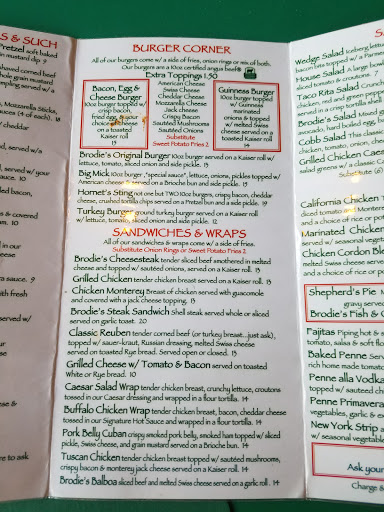 S & SUCH
Pretzel soft baked
mustard dip 9
BURGER CORNER
All of our burgers come w/ a side of fries, onion rings or mix of both.
Our burgers are a 10oz certified angus beef®
Extra Toppings 1.50
Bacon, Egg &
Cheese Burger
10oz burger topped w/
crisp bacon,
fried egg, & your
choice of cheese
on a toasted
Kaiser roll
15
American Cheese
Swiss Cheese
Cheddar Cheese
Mozzarella Cheese
Jack Cheese
Crispy Bacon
Sautéed Mushrooms
Sautéed Onions
Substitute
Sweet Potato Fries 2
Guinness Burger
10oz burger
topped w/
Guinness
marinated
onions & topped
w/ melted Swiss
cheese served on a
toasted Kaiser
roll 14
Brodie's Original Burger 10oz burger served on a Kaiser roll w/
lettuce, tomato, sliced onion and side pickle. 13
Big Mick 10oz burger, "special sauce", lettuce, onions, pickles topped w/
American cheese served on a Brioche bun and side pickle. 13
Hornet's Sting not one but TWO 10oz burgers, crispy bacon, cheddar
cheese, crushed tortilla chips served on a Pretzel bun and a side pickle. 19
Turkey Burger ground turkey burger served on a Kaiser roll
w/ lettuce, tomato, sliced onion and side pickle. 12
SANDWICHES & WRAPS
All of our sandwiches & wraps come w/ a side of fries.
Substitute Onion Rings or Sweet Potato Fries 2
Brodie's Cheesesteak tender sliced beef smothered in melted
cheese and topped w/ sautéed onions, served on a Kaiser roll. 13
Grilled Chicken tender chicken breast served on a Kaiser roll. 13
Chicken Monterey Breast of chicken served with guacamole
and covered w/ jack cheese topping. 13
Brodie's Steak Sandwich Shell steak served whole or sliced
served on garlic toast. 20
Classic Reuben tender corned beef (or turkey breast...just ask),
topped w/ sauer-kraut, Russian dressing, melted Swiss cheese
served on toasted Rye bread. Served open or closed. 13
Grilled Cheese w/ Tomato & Bacon served on toasted
White or Rye bread. 10
Caesar Salad Wrap tender chicken breast, crunchy lettuce, croutons
tossed in our Caesar dressing and wrapped in a flour tortilla. 14
Buffalo Chicken Wrap tender chicken breast, bacon, cheddar cheese
tossed in our Signature Hot Sauce and wrapped in a flour tortilla. 14
Pork Belly Cuban crispy smoked pork belly, smoked ham topped w/ sliced
pickle, Swiss cheese, and grain mustard served on a Brioche bun. 14
Tuscan Chicken tender chicken breast topped w/ sautéed mushrooms,
crispy bacon & monterey jack cheese served on a Kaiser roll. 14
Brodie's Balboa sliced beef and melted Swiss cheese served on a garlic roll. 14
Wedge Salad Iceberg lettuce
House Salad A large bowl
Taco Rita Salad Crunchy
Brodie's Salad Mixed
avocado, hard boiled egg,
Cobb Salad This classic
chicken, tomato, onion,
Grilled Chicken Caesar
salad greens w/ a classic
Substitute
California Chicken
diced tomato & Monterey
and a choice of rice or
Marinated Chicken
served w/ seasonal
Chicken Cordon
melted Swiss served
and a choice of rice or
Shepherd's Pie
gravy served
Brodie's Fish &
Fajitas Piping hot
tomato, salsa & soft
Baked Penne
rich home made tomato
Penne alla Vodka
Penne Primavera
vegetables, garlic &
New York Strip
w/ seasonal vegetables
Ask your
Charge